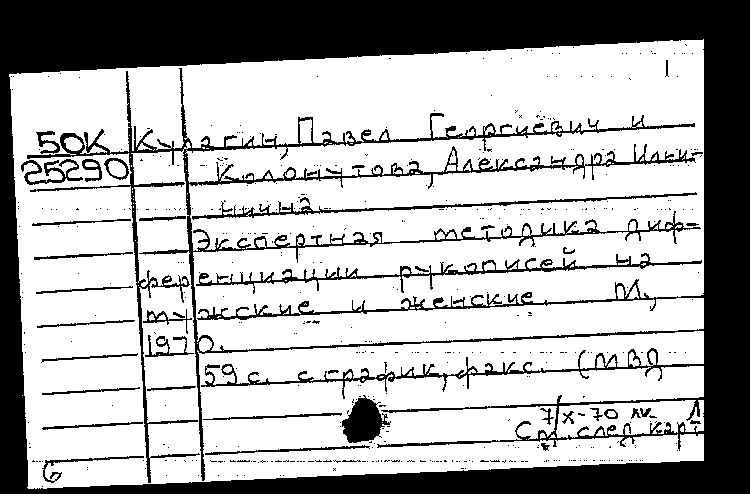 1
50К Кулагин, Павел Георгиевич и
25290 Колонутова, Александра Ильи-
нична.
Экспертная методика диф-
ференциации рукописей на
мужские и женские. М.,
1970.
59 с. с график., факс. (МВД
7/X-70 лк Л
См. след карт
6